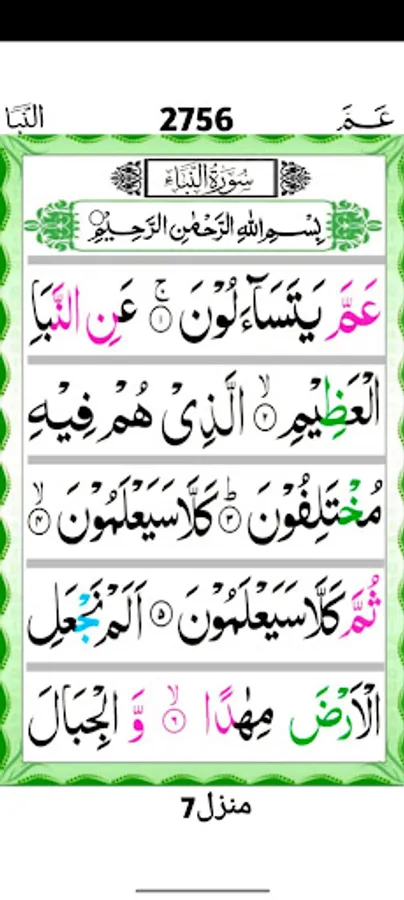 عَمَّ 2756 النَّبَا
سُوْرَةُ النَّبَاءِ
بِسْمِ اللهِ الرَّحْمٰنِ الرَّحِيْمِ
عَمَّ يَتَسَآءَلُوْنَ ۚ ۱ عَنِ النَّبَاِ
الْعَظِيْمِ ۙ ۲ الَّذِیْ هُمْ فِيْهِ
مُخْتَلِفُوْنَ ؕ ۳ كَلَّا سَيَعْلَمُوْنَ ۙ ۴
ثُمَّ كَلَّا سَيَعْلَمُوْنَ ۵ اَلَمْ نَجْعَلِ
الْاَرْضَ مِهٰدًا ۙ ۶ وَّ الْجِبَالَ
منزل7